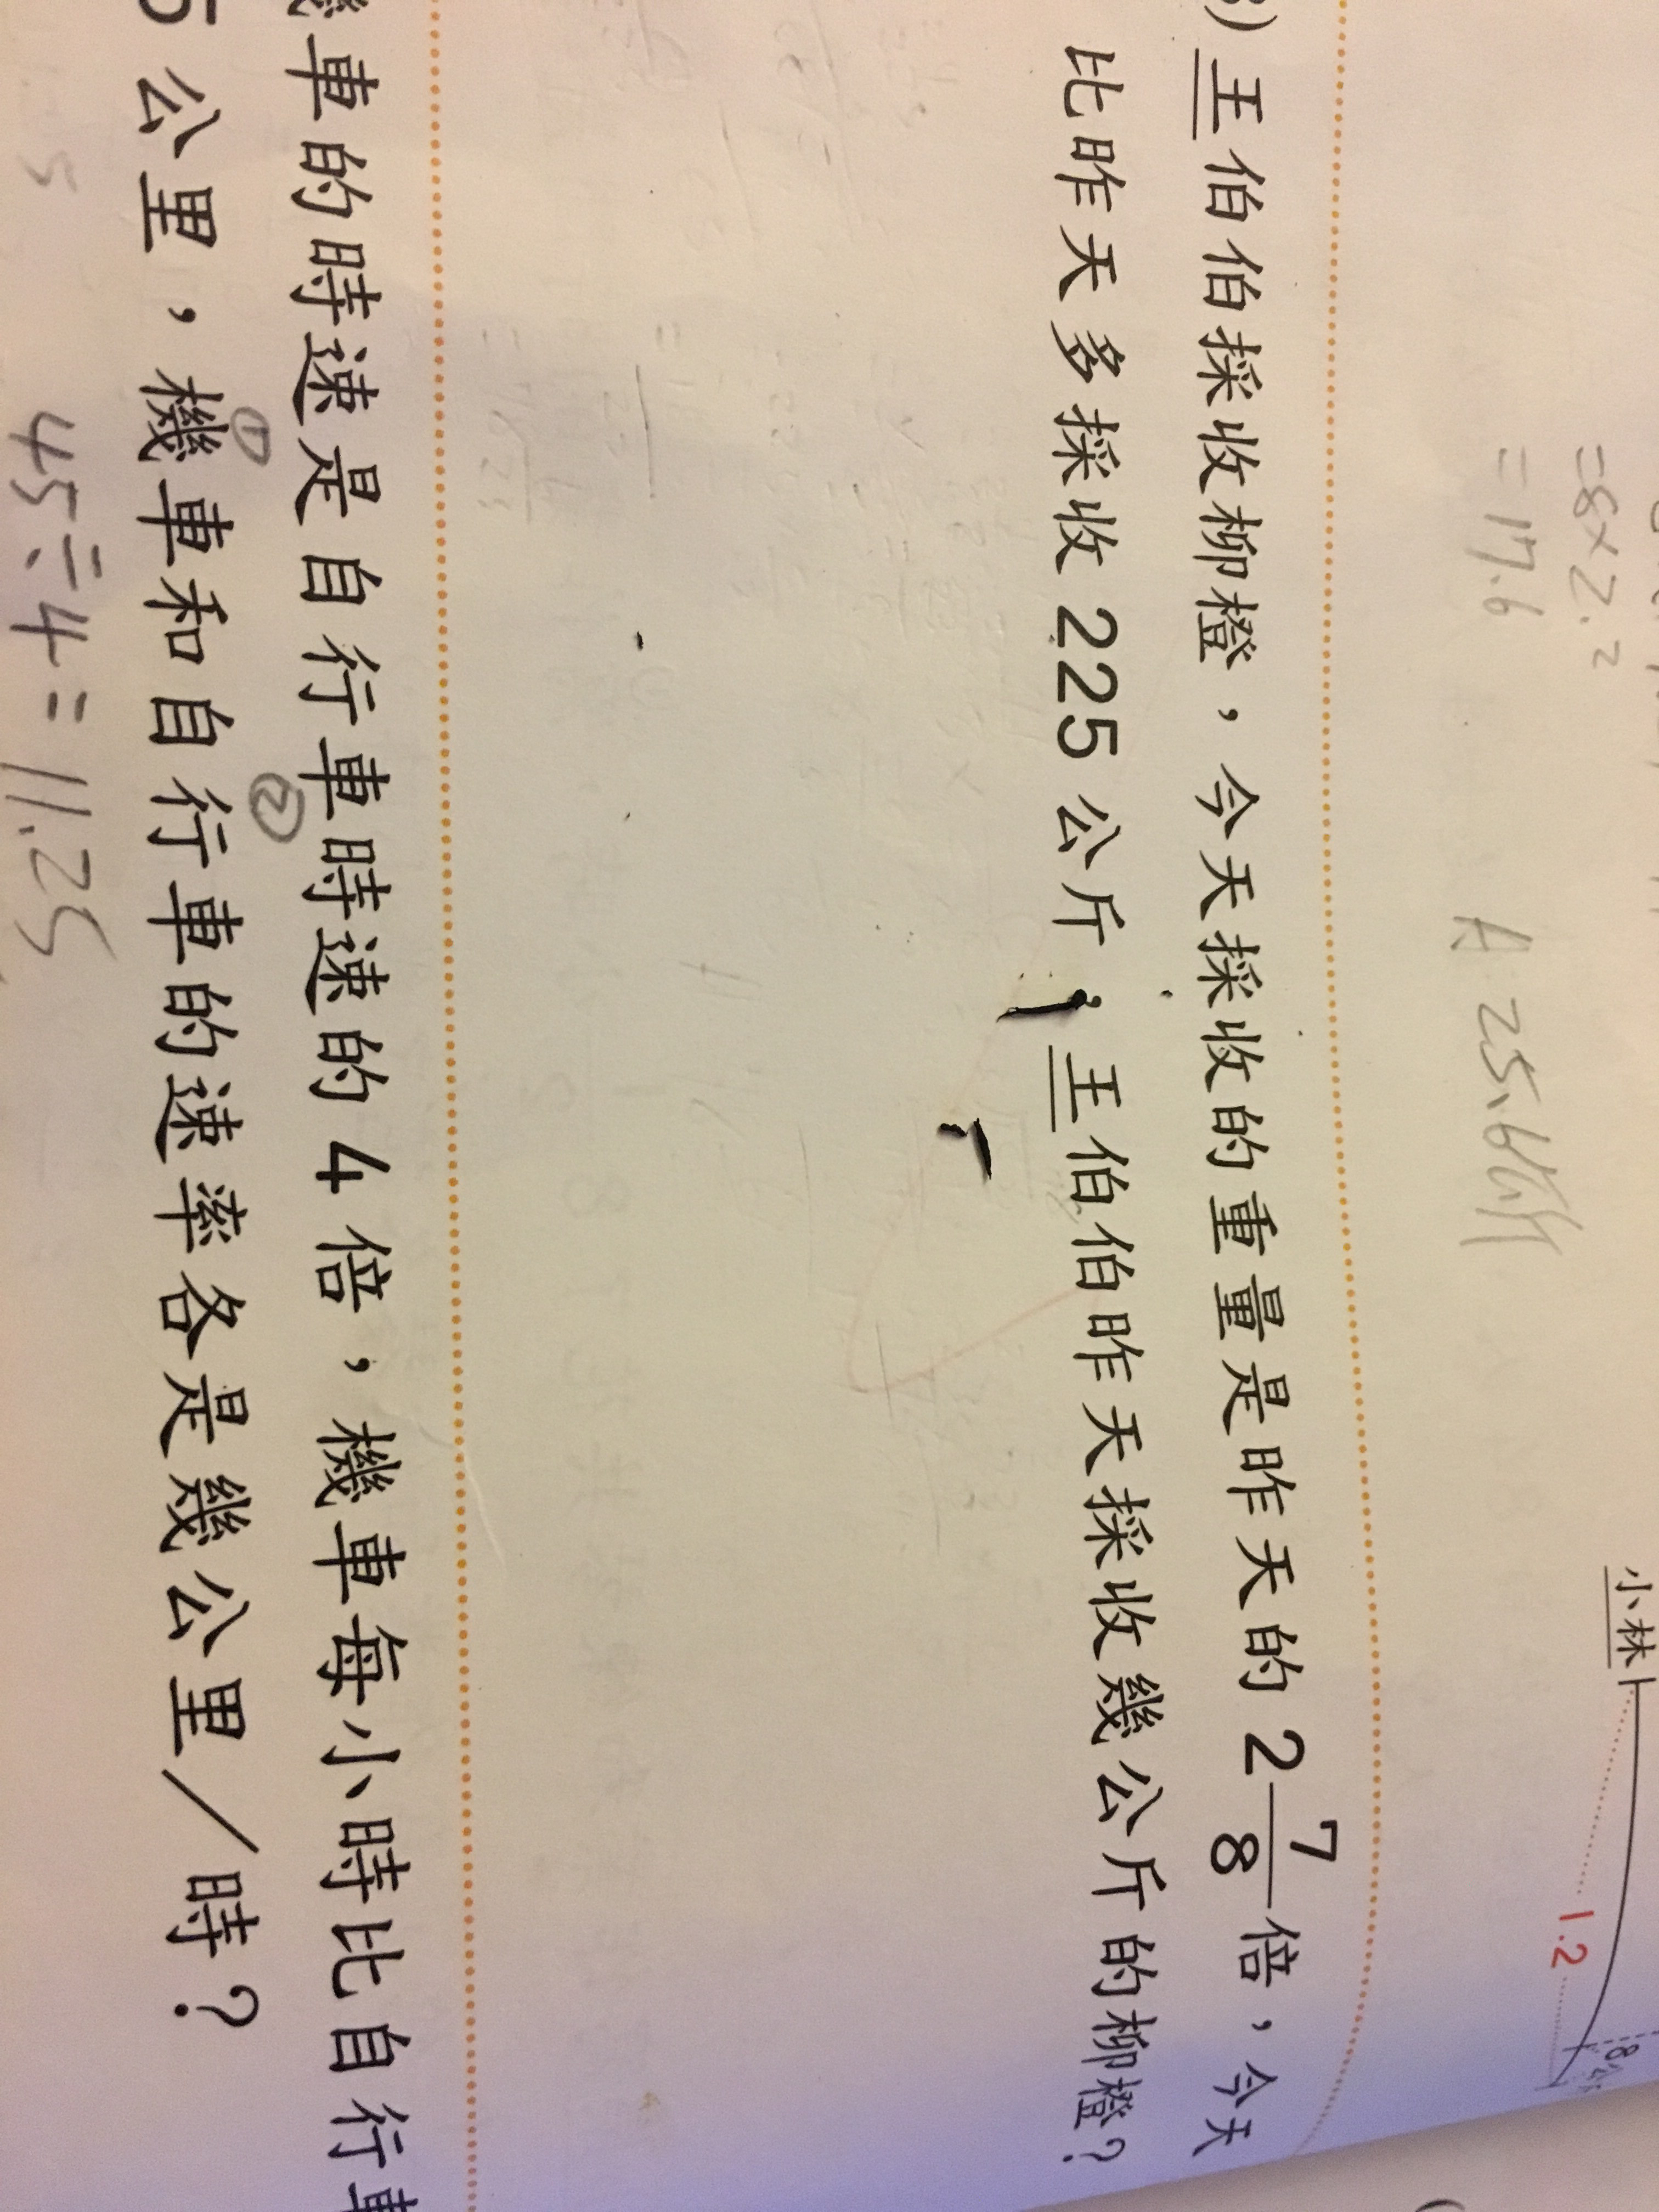 =8×2.2
=17.6
A: 25.6公斤
小林
1.2
王伯伯採收柳橙，今天採收的重量是昨天的 2 7/8 倍，今天
比昨天多採收 225 公斤，王伯伯昨天採收幾公斤的柳橙？
車的時速是自行車時速的 4 倍，機車每小時比自行車
5 公里，機車和自行車的速率各是幾公里／時？
① ②
45÷4=11.25